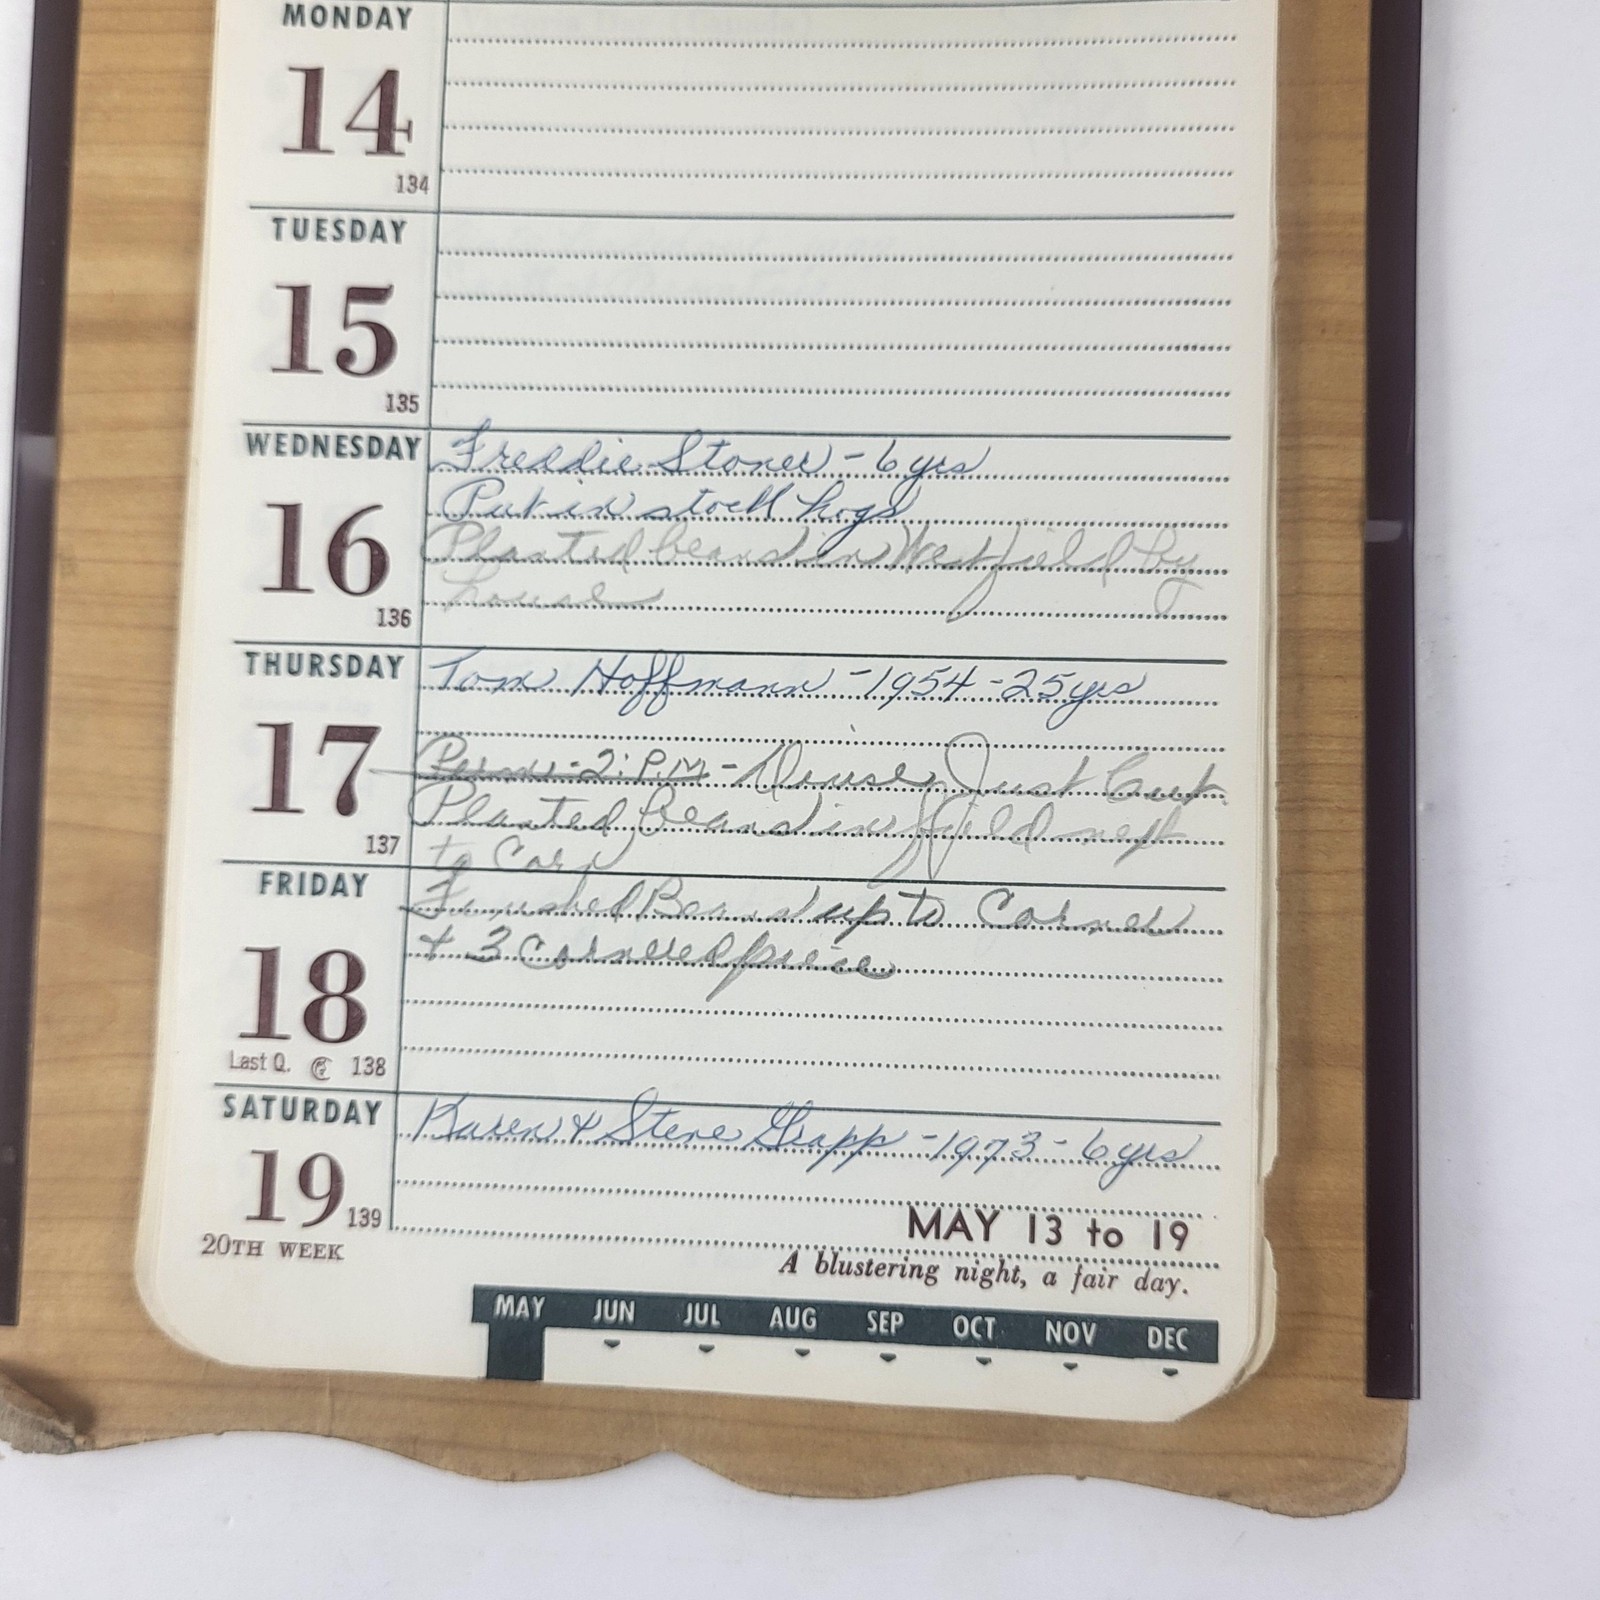 MONDAY
14
134
TUESDAY
15
135
WEDNESDAY
16
136
Freddie Stoner - 6 yrs
Put in stock hogs
Planted beans in West field by
house
THURSDAY
17
137
Tom Hoffmann - 1954 - 25 yrs
Perm - 2: P.M. - Denise Just Cut
Planted Beans in field next
to Corn
FRIDAY
18
Last Q. 138
Finished Beans up to Corner
+ 3 Cornered piece
SATURDAY
19
139
20TH WEEK
Karen & Steve Grapp - 1973 - 6 yrs
MAY 13 to 19
A blustering night, a fair day.
MAY JUN JUL AUG SEP OCT NOV DEC